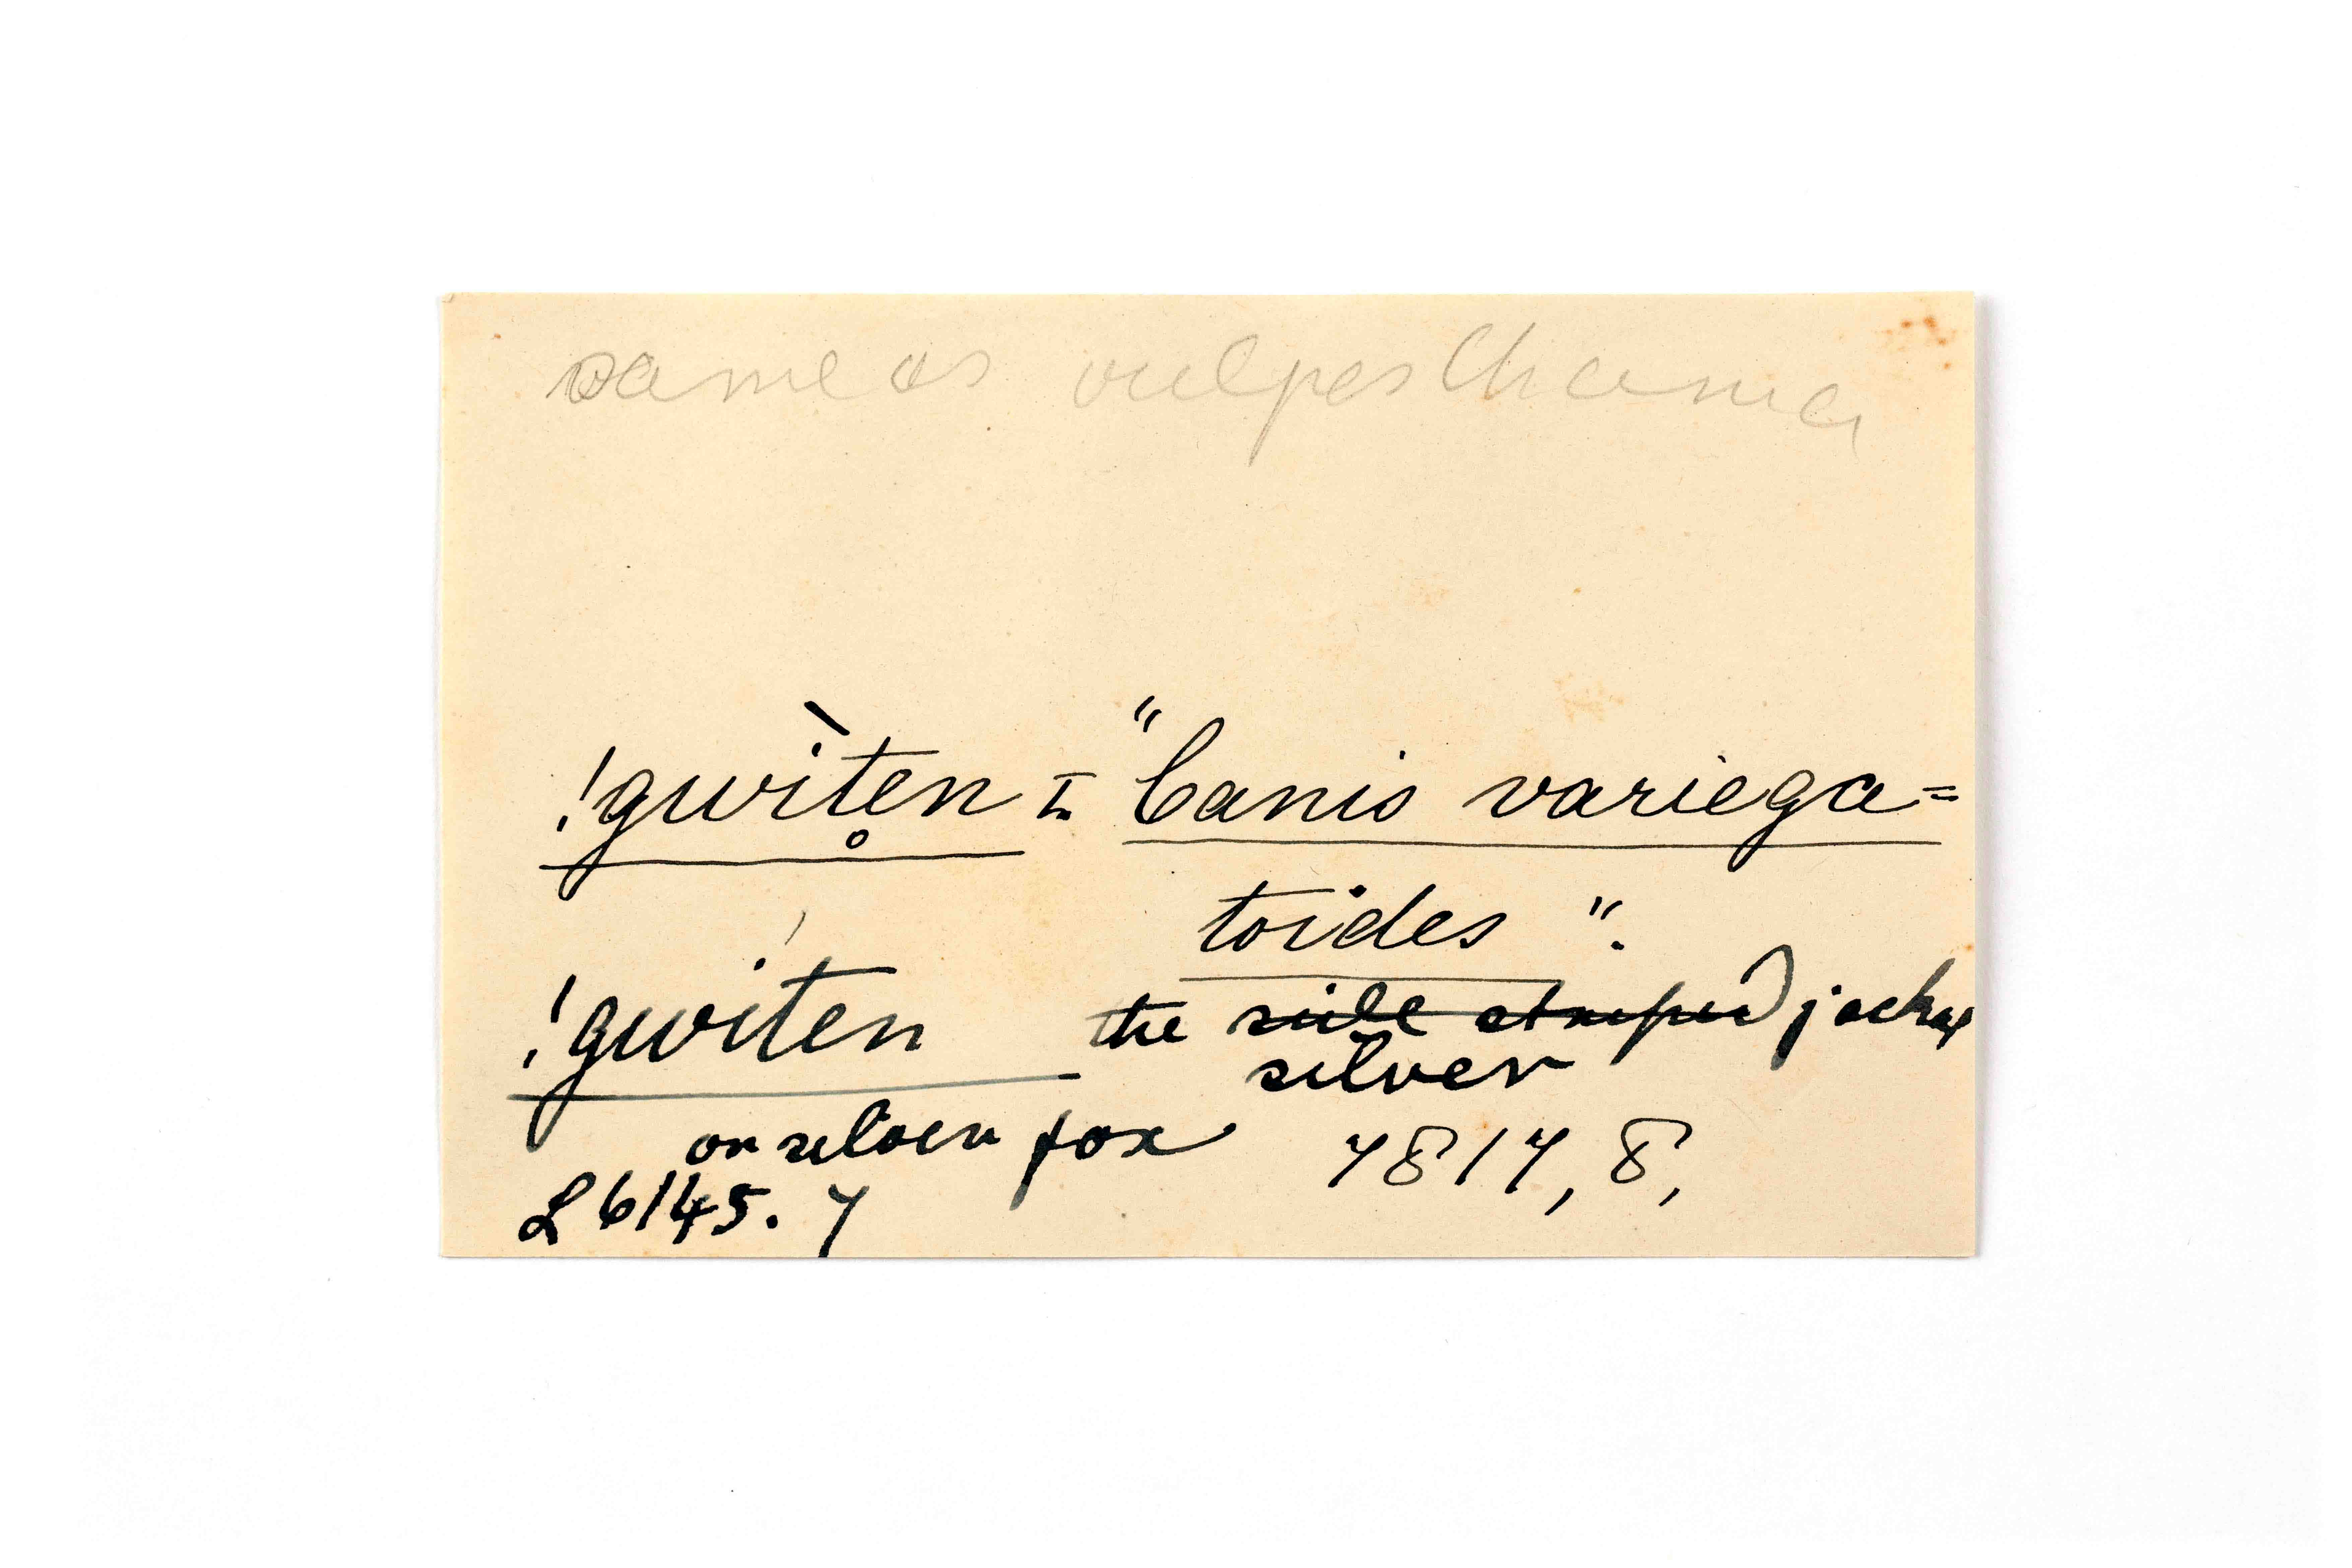 same as vulpes Chama
!gwìten̥ = "Canis variega=
toides".
!gwíten the side striped jackal
silver
or silver fox 7817, 8,
L 6145. 7